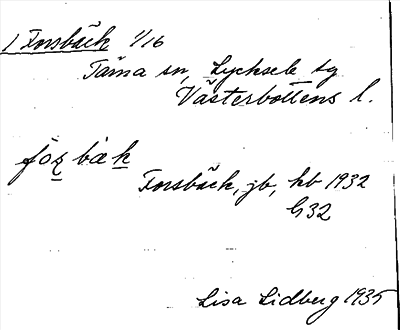 1 Forsbäck 1/16
Tärna sn, Lycksele tg
Västerbottens l.
Forsbäck, jb, kb 1932
G32
Lisa Lidberg 1935